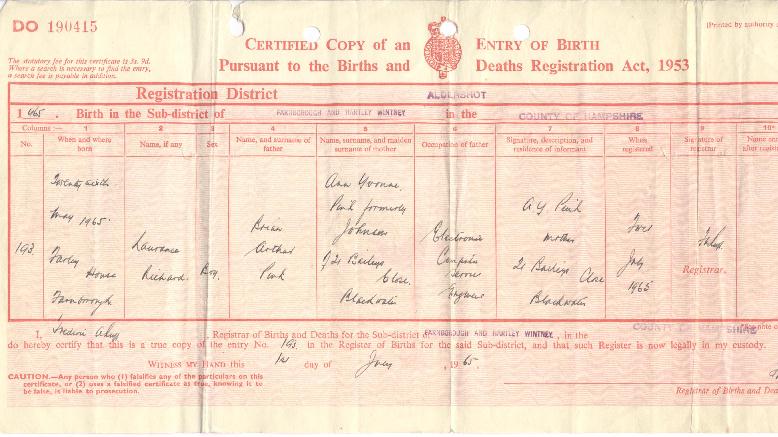 DO 190415
[Printed by authority
CERTIFIED COPY of an ENTRY OF BIRTH
Pursuant to the Births and Deaths Registration Act, 1953
The statutory fee for this certificate is 3s. 9d.
Where a search is necessary to find the entry,
a search fee is payable in addition.
Registration District ALDERSHOT
1965. Birth in the Sub-district of FARNBOROUGH AND HARTLEY WINTNEY in the COUNTY OF HAMPSHIRE
Columns :— 1 2 3 4 5 6 7 8 9 10*
No. When and where born Name, if any Sex Name, and surname of father Name, surname, and maiden surname of mother Occupation of father Signature, description, and residence of informant When registered Signature of registrar Name after regist
193
Twenty sixth
May 1965.
Farley
House
Farnborough
Laurance
Richard.
Boy.
Brian
Arthur
Pink
Ann Yvonne.
Pink formerly
Johnson
of 21 Baileys
Close.
Blackwater
Electronic
Computer
Service
Engineer
A.Y. Pink
Mother
21 Baileys Close
Blackwater
First
July
1965
Registrar.
I, Registrar of Births and Deaths for the Sub-district of FARNBOROUGH AND HARTLEY WINTNEY, in the COUNTY OF HAMPSHIRE
do hereby certify that this is a true copy of the entry No. 193 in the Register of Births for the said Sub-district, and that such Register is now legally in my custody.
WITNESS MY HAND this 1st day of July, 1965.
CAUTION.—Any person who (1) falsifies any of the particulars on this
certificate, or (2) uses a falsified certificate as true, knowing it to
be false, is liable to prosecution.
Registrar of Births and Dea